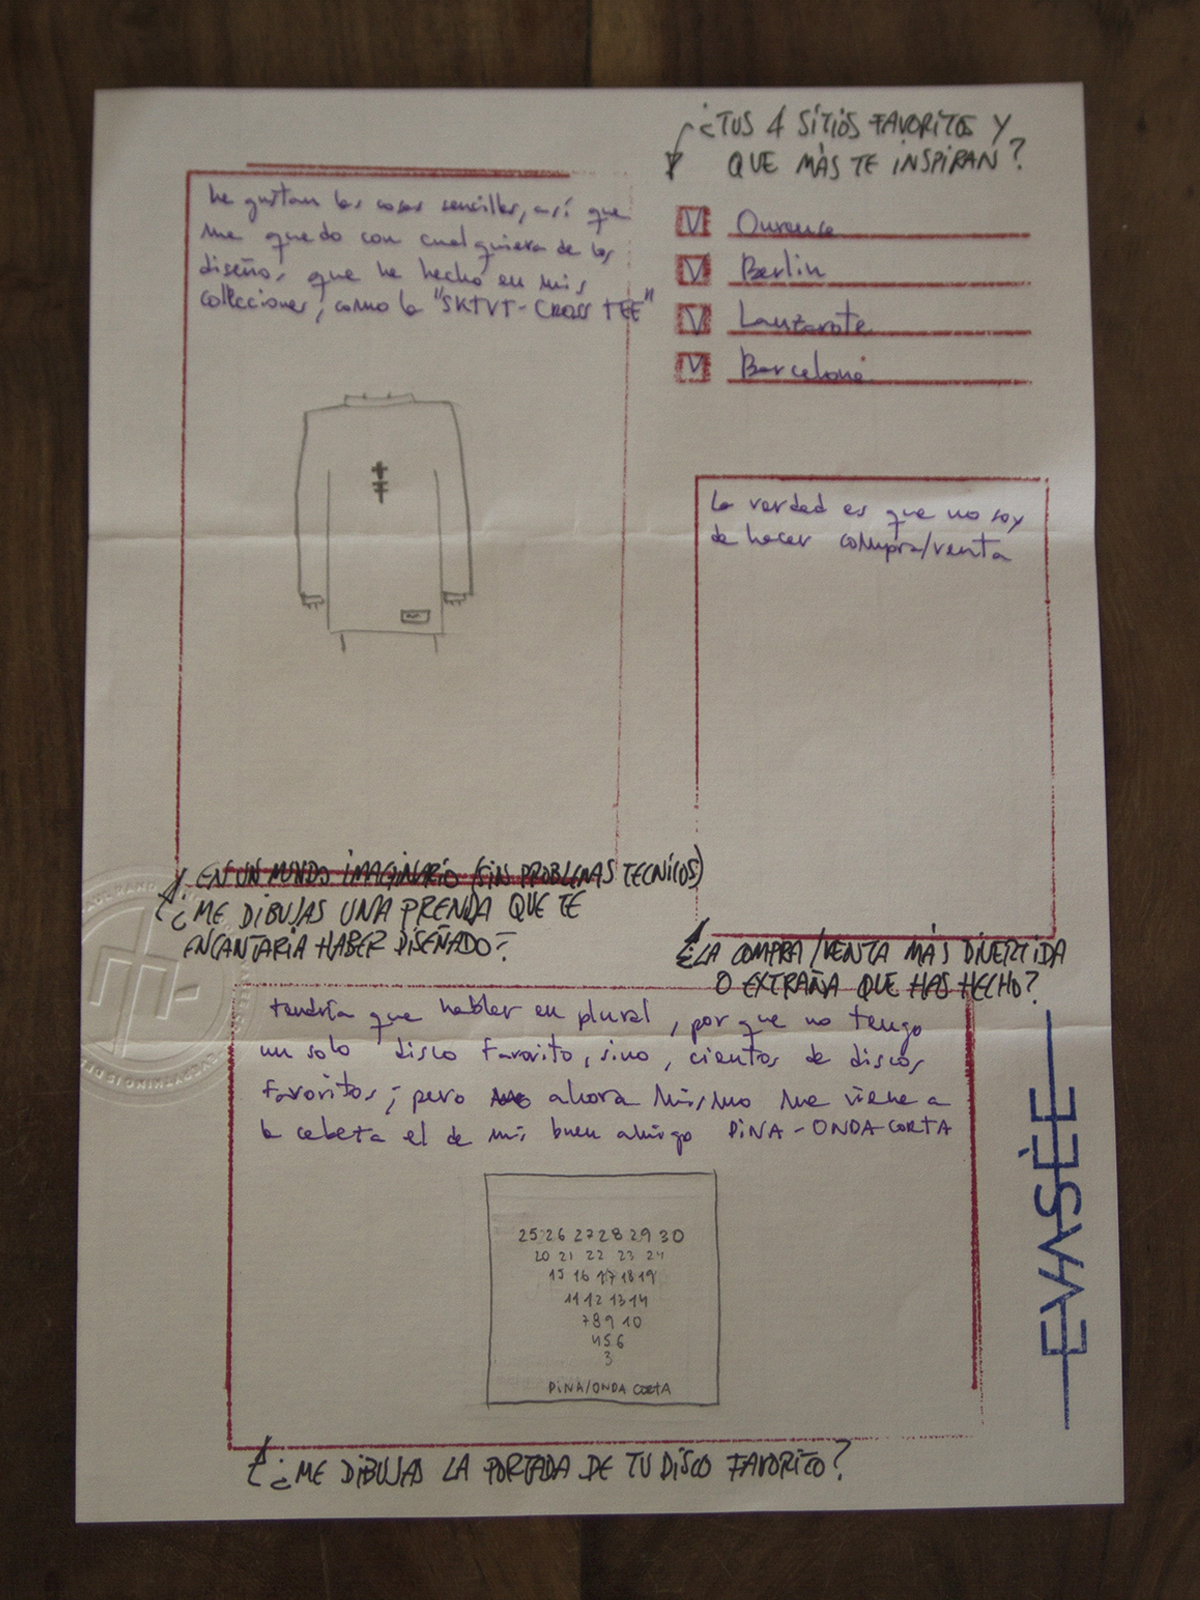 ¿TUS 4 SITIOS FAVORITOS Y
QUE MÁS TE INSPIRAN?
Ourense
Berlin
Lanzarote
Barcelona
Me gustan las cosas sencillas, así que
me quedo con cualquiera de los
diseños que he hecho en mis
collecciones, como la "SKTVT-CROSS TEE"
EN UN MUNDO IMAGINARIO (SIN PROBLEMAS TECNICOS)
¿ME DIBUJAS UNA PRENDA QUE TE
ENCANTARIA HABER DISEÑADO?
La verdad es que no soy
de hacer compra/venta
¿LA COMPRA/VENTA MÁS DIVERTIDA
O EXTRAÑA QUE HAS HECHO?
tendría que hablar en plural, por que no tengo
un solo disco favorito, sino, cientos de discos
favoritos; pero ahora mismo me viene a
la cabeza el de mi buen amigo PINA-ONDA CORTA
25 26 27 28 29 30
20 21 22 23 24
15 16 17 18 19
11 12 13 14
7 8 9 10
4 5 6
3
PINA/ONDA CORTA
¿ME DIBUJAS LA PORTADA DE TU DISCO FAVORITO?
EVASÉE